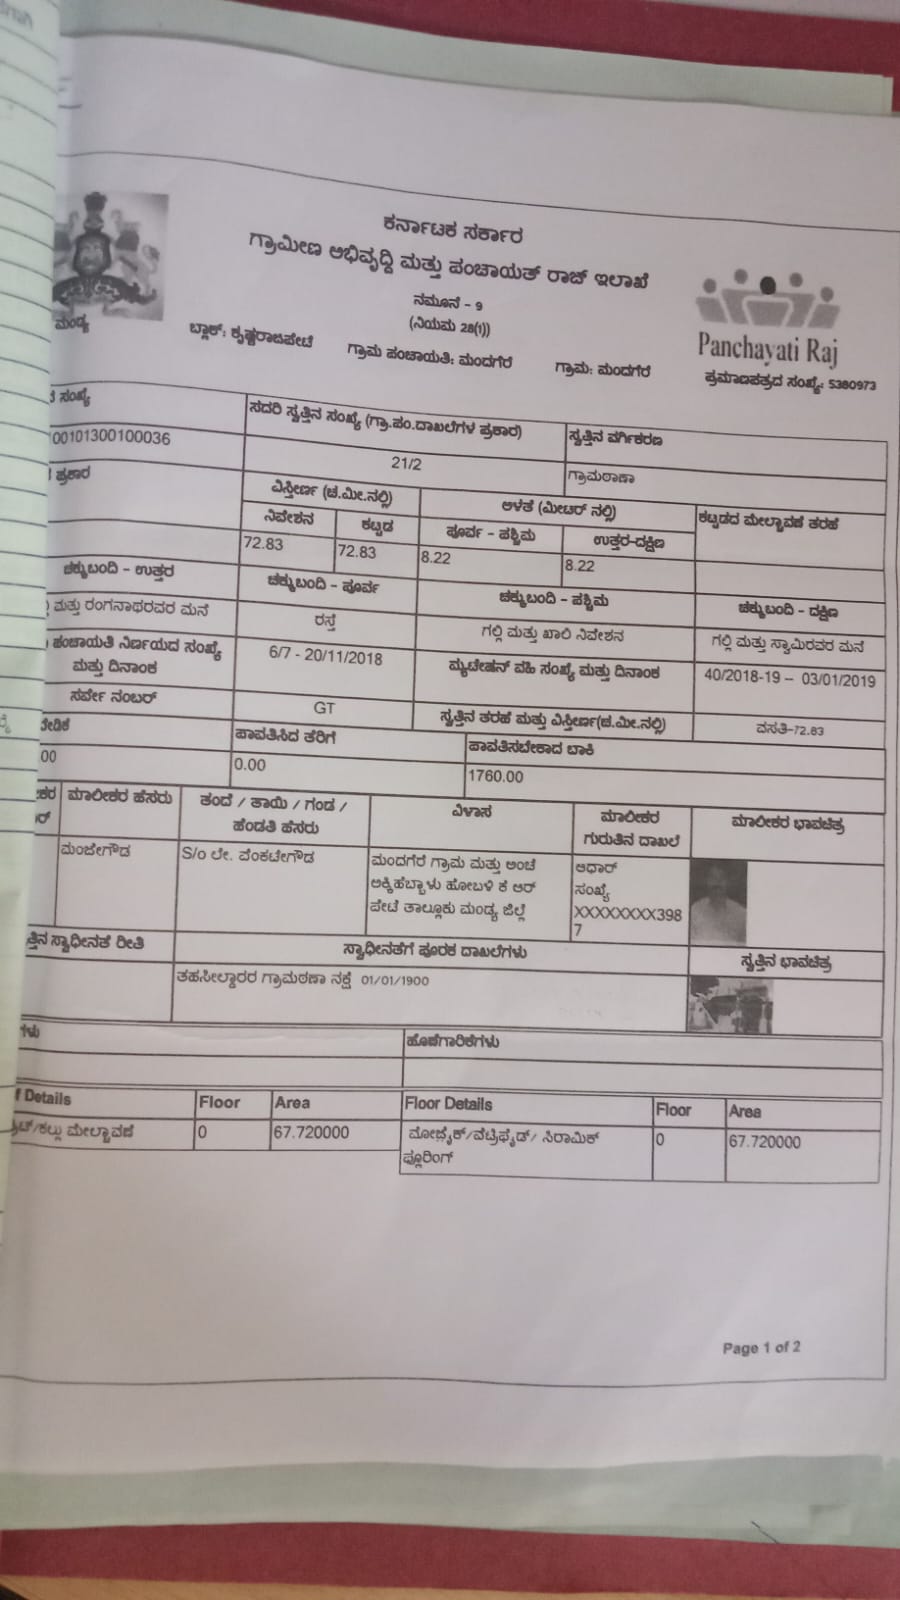 ಕರ್ನಾಟಕ ಸರ್ಕಾರ
ಗ್ರಾಮೀಣ ಅಭಿವೃದ್ದಿ ಮತ್ತು ಪಂಚಾಯತ್ ರಾಜ್ ಇಲಾಖೆ
ನಮೂನೆ - 9
(ನಿಯಮ 28(1))
Panchayati Raj
ಮಂಡ್ಯ ಬ್ಲಾಕ್: ಕೃಷ್ಣರಾಜಪೇಟೆ ಗ್ರಾಮ ಪಂಚಾಯತಿ: ಮಂದಗೆರೆ ಗ್ರಾಮ: ಮಂದಗೆರೆ ಪ್ರಮಾಣಪತ್ರದ ಸಂಖ್ಯೆ: 5380973
ಸಂಖ್ಯೆ ಸದರಿ ಸ್ವತ್ತಿನ ಸಂಖ್ಯೆ (ಗ್ರಾ.ಪಂ.ದಾಖಲೆಗಳ ಪ್ರಕಾರ) ಸ್ವತ್ತಿನ ವರ್ಗಿಕರಣ
00101300100036 21/2 ಗ್ರಾಮಠಾಣಾ
ಪ್ರಕಾರ ವಿಸ್ತೀರ್ಣ (ಚ.ಮೀ.ನಲ್ಲಿ) ಅಳತೆ (ಮೀಟರ್ ನಲ್ಲಿ) ಕಟ್ಟಡದ ಮೇಲ್ಚಾವಣೆ ತರಹೆ
ನಿವೇಶನ ಕಟ್ಟಡ ಪೂರ್ವ - ಪಶ್ಚಿಮ ಉತ್ತರ-ದಕ್ಷಿಣ
72.83 72.83 8.22 8.22
ಚಕ್ಕುಬಂದಿ - ಉತ್ತರ ಚಕ್ಕುಬಂದಿ - ಪೂರ್ವ ಚಕ್ಕುಬಂದಿ - ಪಶ್ಚಿಮ ಚಕ್ಕುಬಂದಿ - ದಕ್ಷಿಣ
ಮತ್ತು ರಂಗನಾಥರವರ ಮನೆ ರಸ್ತೆ ಗಲ್ಲಿ ಮತ್ತು ಖಾಲಿ ನಿವೇಶನ ಗಲ್ಲಿ ಮತ್ತು ಸ್ವಾಮಿರವರ ಮನೆ
ಪಂಚಾಯತಿ ನಿರ್ಣಯದ ಸಂಖ್ಯೆ
ಮತ್ತು ದಿನಾಂಕ 6/7 - 20/11/2018 ಮ್ಯುಟೇಷನ್ ವಹಿ ಸಂಖ್ಯೆ ಮತ್ತು ದಿನಾಂಕ 40/2018-19 -- 03/01/2019
ಸರ್ವೇ ನಂಬರ್ GT ಸ್ವತ್ತಿನ ತರಹೆ ಮತ್ತು ವಿಸ್ತೀರ್ಣ(ಚ.ಮೀ.ನಲ್ಲಿ) ವಸತಿ-72.83
ಪಾವತಿಸಿದ ತೆರಿಗೆ ಪಾವತಿಸಬೇಕಾದ ಬಾಕಿ
00 0.00 1760.00
ಮಾಲೀಕರ ಹೆಸರು ತಂದೆ / ತಾಯಿ / ಗಂಡ / ಹೆಂಡತಿ ಹೆಸರು ವಿಳಾಸ ಮಾಲೀಕರ ಗುರುತಿನ ದಾಖಲೆ ಮಾಲೀಕರ ಭಾವಚಿತ್ರ
ಮಂಜೇಗೌಡ S/o ಲೇ. ವೆಂಕಟೇಗೌಡ ಮಂದಗೆರೆ ಗ್ರಾಮ ಮತ್ತು ಅಂಚೆ ಆಧಾರ್
ಅಕ್ಕಿಹೆಬ್ಬಾಳು ಹೋಬಳಿ ಕೆ ಆರ್ ಸಂಖ್ಯೆ
ಪೇಟೆ ತಾಲ್ಲೂಕು ಮಂಡ್ಯ ಜಿಲ್ಲೆ XXXXXXXX398
7
ಸ್ವಾಧೀನತೆ ರೀತಿ ಸ್ವಾಧೀನತೆಗೆ ಪೂರಕ ದಾಖಲೆಗಳು ಸ್ವತ್ತಿನ ಭಾವಚಿತ್ರ
ತಹಸೀಲ್ದಾರರ ಗ್ರಾಮಠಣಾ ನಕ್ಷೆ 01/01/1900
ಹೊಣೆಗಾರಿಕೆಗಳು
Details Floor Area Floor Details Floor Area
ಮೇಲ್ಚಾವಣಿ 0 67.720000 ಮೋಝೈಕ್/ವೆಟ್ರಿಫೈಡ್/ ಸಿರಾಮಿಕ್ 0 67.720000
ಫ್ಲೂರಿಂಗ್
Page 1 of 2